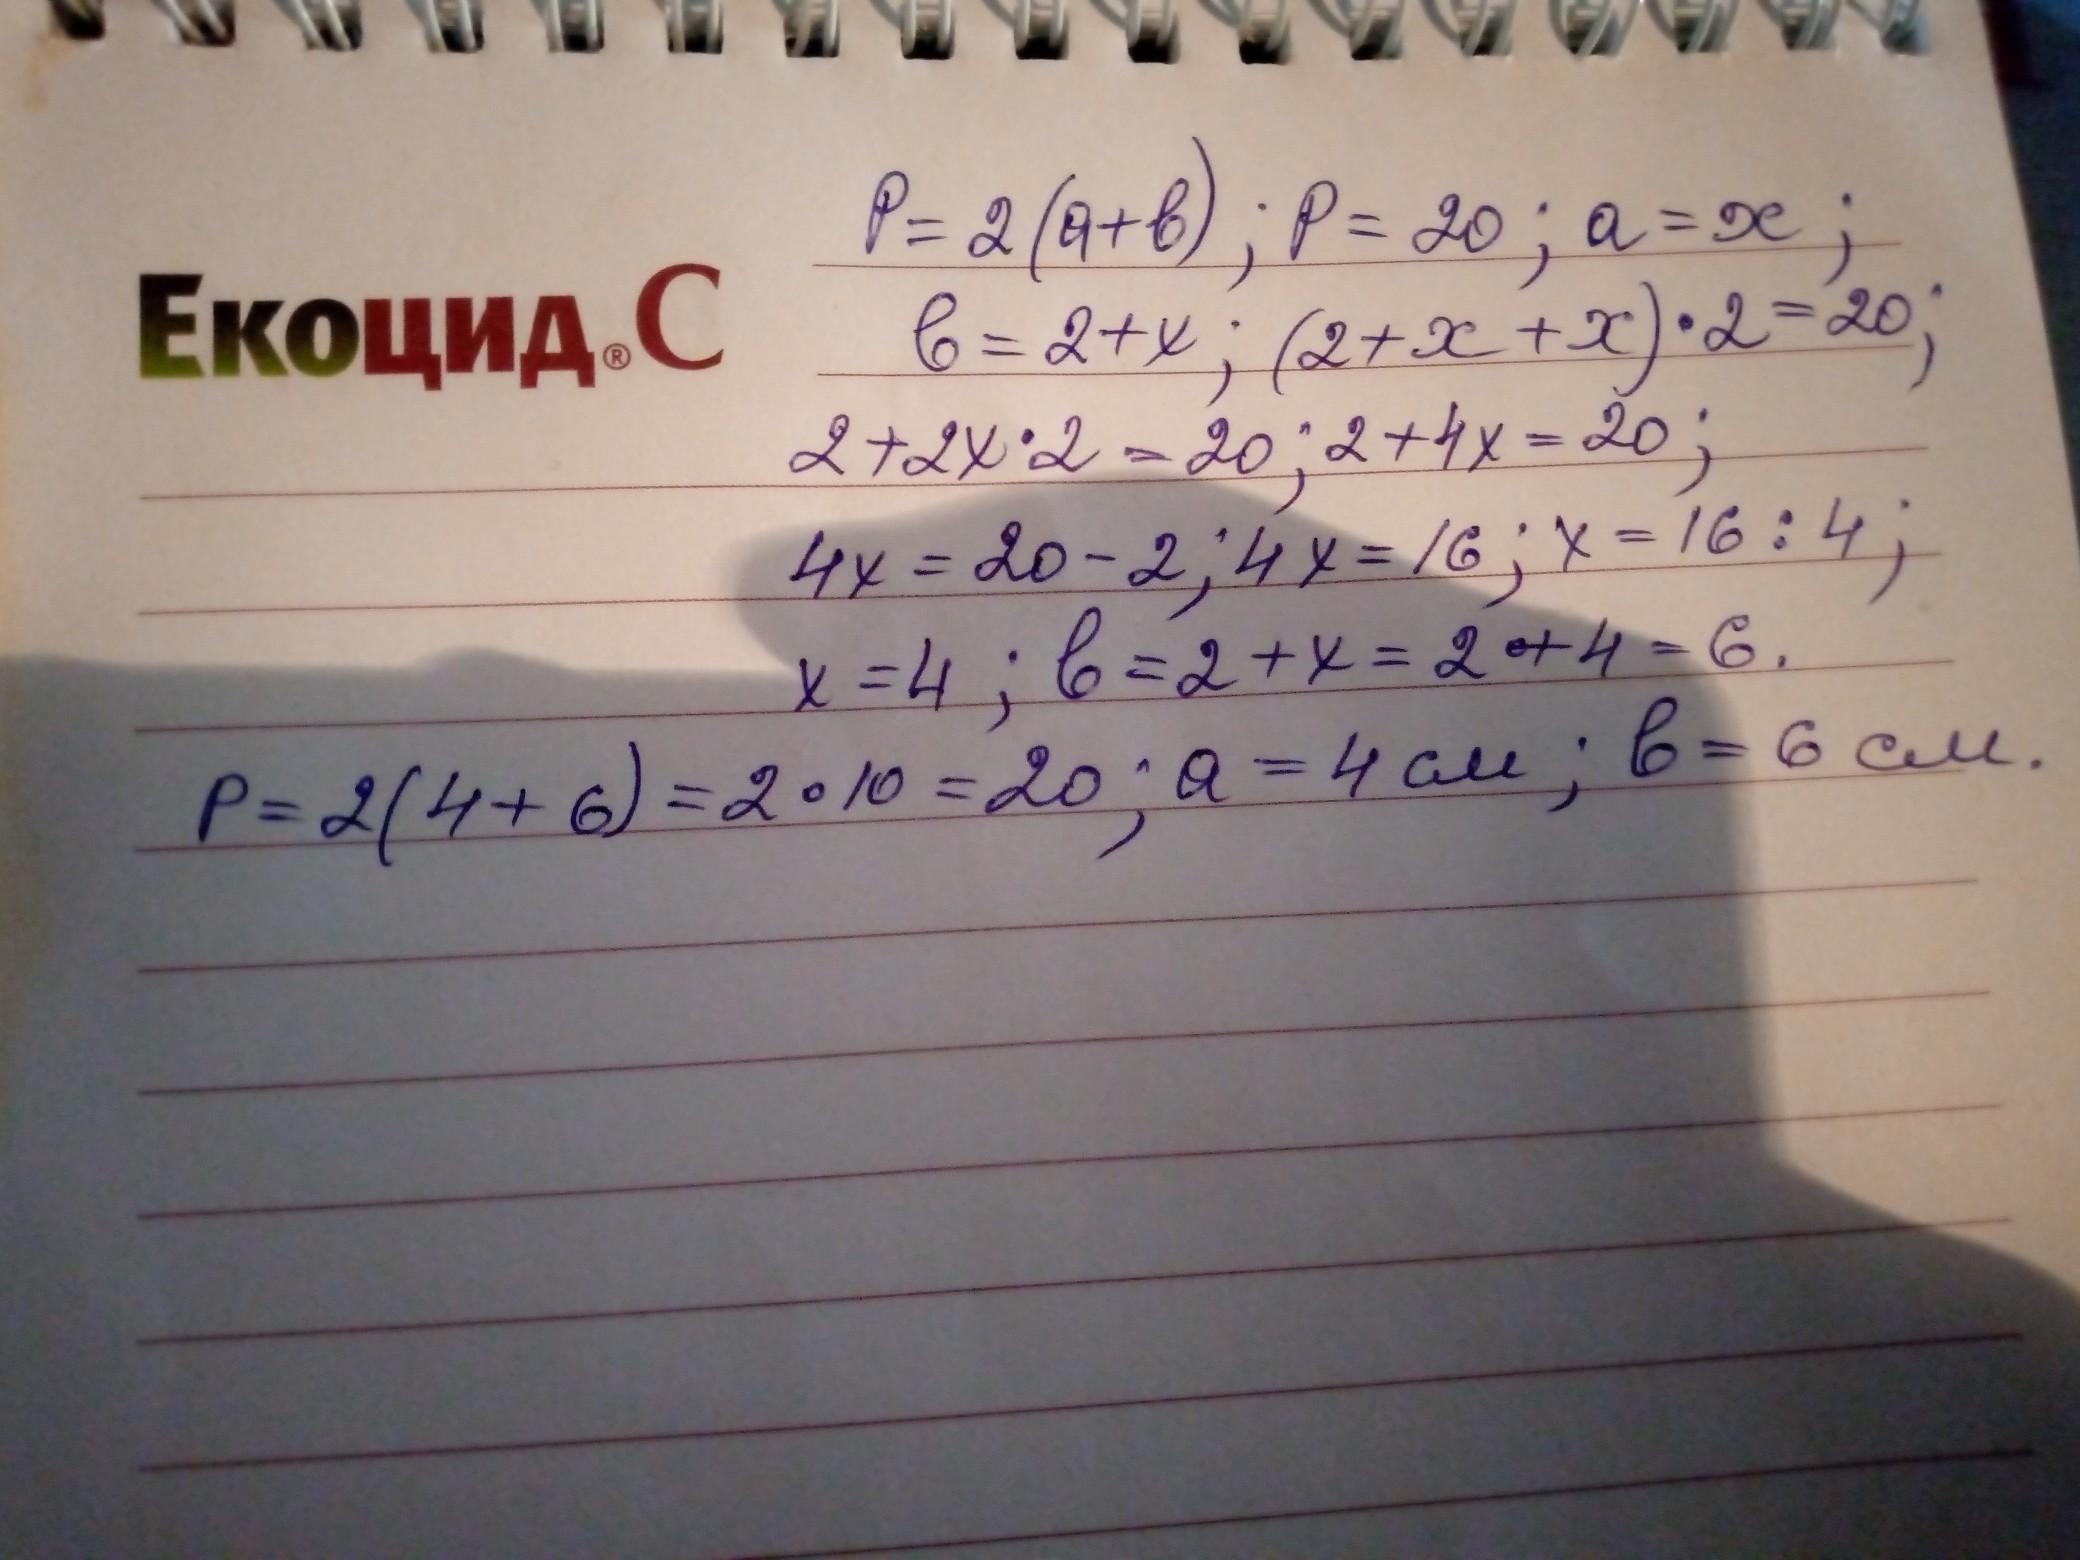 P = 2(a+b); P = 20; a = x;
Екоцид® С
b = 2+x; (2+x+x)·2 = 20;
2+2x·2 = 20; 2+4x = 20;
4x = 20-2; 4x = 16; x = 16:4;
x = 4; b = 2+x = 2+4 = 6.
P = 2(4+6) = 2·10 = 20; a = 4 см; b = 6 см.